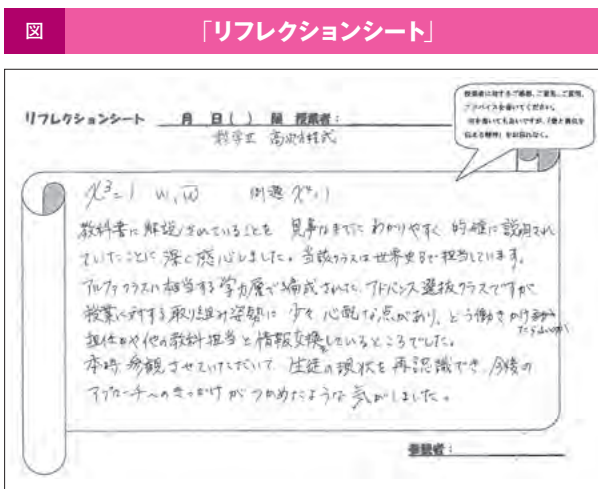 図 「リフレクションシート」
リフレクションシート 月 日( ) 限 授業者：
数学Ⅱ 高次方程式
授業者に対するご感想、ご意見、ご質問、
アドバイスを書いてください。
何を書いてもよいですが、「愛と勇気を
伝える精神」をお忘れなく。
x³=1 ω, ω̄ 例題 x⁴=1
教科書に解説されていることを 見事なまでに わかりやすく 的確に説明され
ていたことに 深く感心しました。当該クラスは世界史Bで担当しています。
アルファクラスに相当する学力層で編成された、アドバンス選抜クラスですが
授業に対する取り組み姿勢に 少々 心配な点があり、どう働きかけ
たらよいか
担任や他の教科担当と情報交換しているところでした。
本時 参観させていただいて 生徒の現状を再認識でき、今後の
アプローチへのきっかけが つかめたような 気がしました。
参観者：